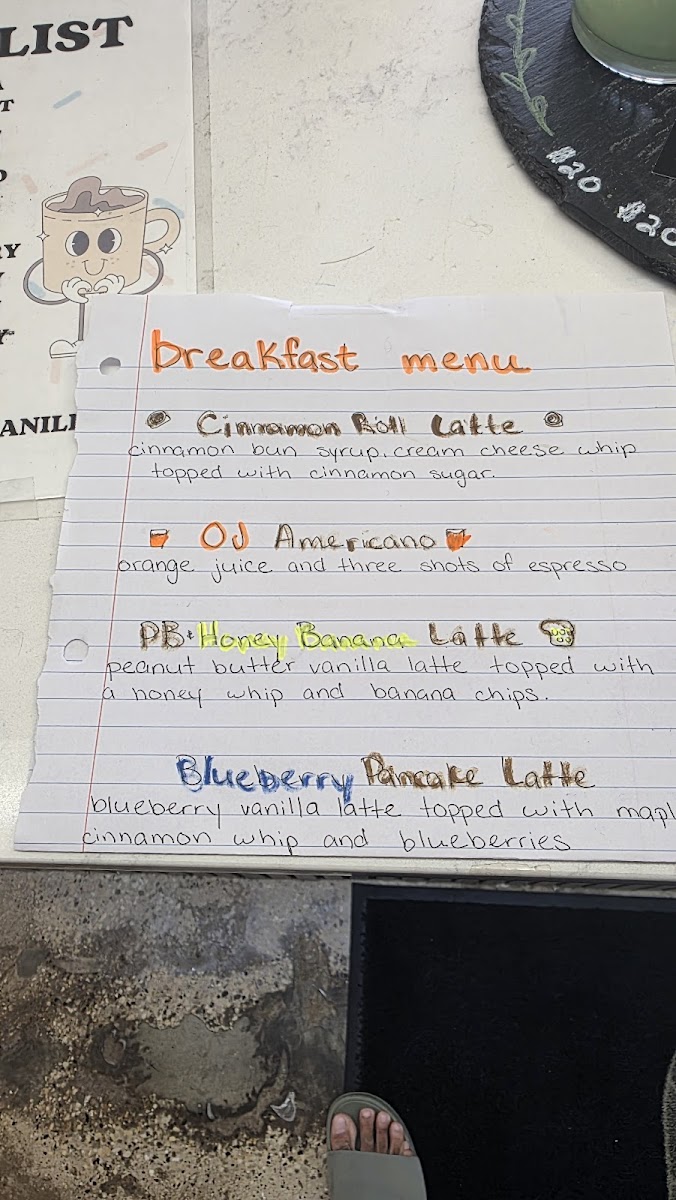 LIST
ANILI
$20 $20
breakfast menu
Cinnamon Roll Latte
cinnamon bun syrup, cream cheese whip
topped with cinnamon sugar.
OJ Americano
orange juice and three shots of espresso
PB+Honey Banana Latte
peanut butter vanilla latte topped with
a honey whip and banana chips.
Blueberry Pancake Latte
blueberry vanilla latte topped with mapl
cinnamon whip and blueberries